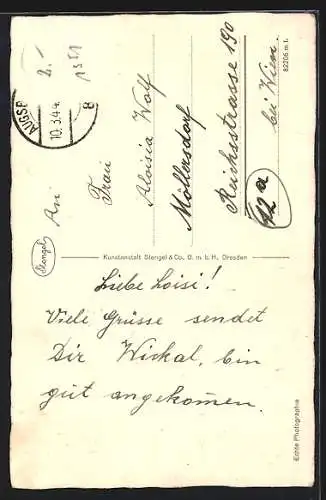 2.-
1351
AUGSB
10.3.44
8
An
Frau
Aloisia Wolf
Möllersdorf
Reichsstrasse 190
bei Wien
12a
82206 m. l.
Stengel
Kunstanstalt Stengel & Co., G. m. b. H., Dresden
Liebe Loisi!
Viele Grüsse sendet
Dir Wickal, bin
gut angekommen.
Echte Photographie